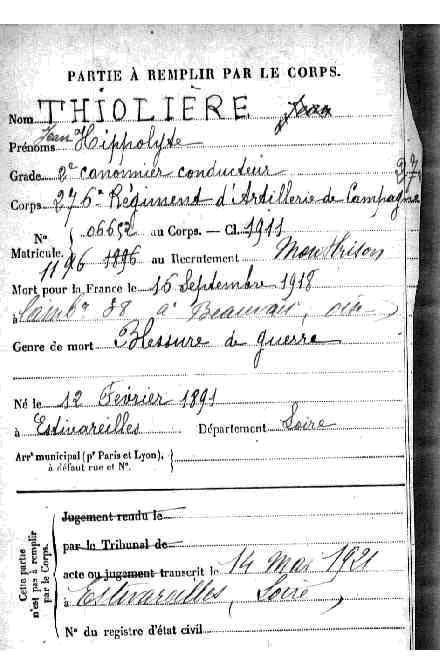 PARTIE À REMPLIR PAR LE CORPS.
Nom THIOLIÈRE Jean
Prénoms Jean Hippolyte
Grade 2e canonnier conducteur
Corps 276e Régiment d'Artillerie de Campagne
No 06652 au Corps. — Cl. 1911
Matricule. 1196 1896 au Recrutement Montbrison
Mort pour la France le 15 Septembre 1918
à 38 à Beauvais, Oise
Genre de mort Blessure de guerre
Né le 12 Février 1891
à Estivareilles Département Loire
Arrt municipal (pr Paris et Lyon),
à défaut rue et No.
Cette partie
n'est pas à remplir
par le Corps.
Jugement rendu le
par le Tribunal de
acte ou jugement transcrit le 14 Mai 1921
à Estivareilles, Loire
No du registre d'état civil